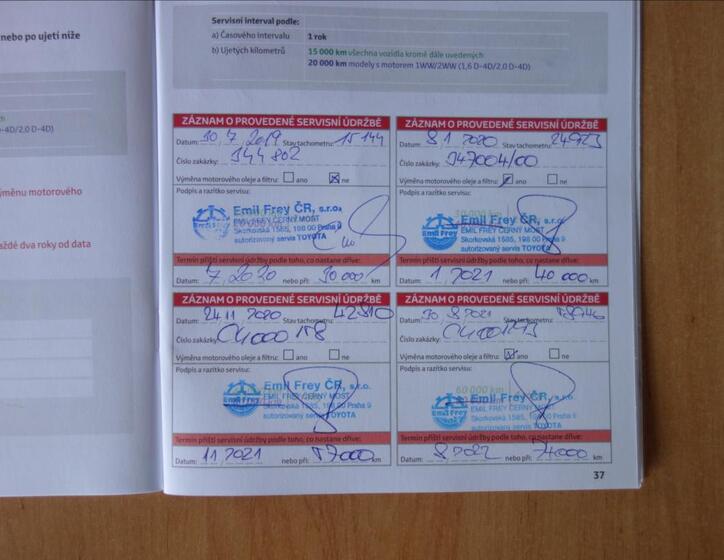 nebo po ujetí níže
-4D/2,0 D-4D)
ýměnu motorového
každé dva roky od data
Servisní interval podle:
a) Časového intervalu 1 rok
b) Ujetých kilometrů 15 000 km všechna vozidla kromě dále uvedených
20 000 km modely s motorem 1WW/2WW (1,6 D-4D/2,0 D-4D)
ZÁZNAM O PROVEDENÉ SERVISNÍ ÚDRŽBĚ
Datum: 30 7 2019 Stav tachometru: 15 144
Číslo zakázky: 344 802
Výměna motorového oleje a filtru: ano ne
Podpis a razítko servisu:
Emil Frey ČR, s.r.o.
EMIL FREY ČERNÝ MOST
Skorkovská 1585, 198 00 Praha 9
autorizovaný servis TOYOTA
Termín příští servisní údržby podle toho, co nastane dříve:
Datum: 7 2020 nebo při: 30 000 km
ZÁZNAM O PROVEDENÉ SERVISNÍ ÚDRŽBĚ
Datum: 8 1 2020 Stav tachometru: 24923
Číslo zakázky: 347004/00
Výměna motorového oleje a filtru: ano ne
Podpis a razítko servisu:
Emil Frey ČR, s.r.o.
EMIL FREY ČERNÝ MOST
Skorkovská 1585, 198 00 Praha 9
autorizovaný servis TOYOTA
Termín příští servisní údržby podle toho, co nastane dříve:
Datum: 1 2021 nebo při: 40 000 km
ZÁZNAM O PROVEDENÉ SERVISNÍ ÚDRŽBĚ
Datum: 24 11 2020 Stav tachometru: 42810
Číslo zakázky: C4000 158
Výměna motorového oleje a filtru: ano ne
Podpis a razítko servisu:
Emil Frey ČR, s.r.o.
EMIL FREY ČERNÝ MOST
Skorkovská 1585, 198 00 Praha 9
autorizovaný servis TOYOTA
Termín příští servisní údržby podle toho, co nastane dříve:
Datum: 11 2021 nebo při: 57000 km
ZÁZNAM O PROVEDENÉ SERVISNÍ ÚDRŽBĚ
Datum: 30 8 2021 Stav tachometru:
Číslo zakázky:
Výměna motorového oleje a filtru: ano ne
Podpis a razítko servisu:
60 000 km
Emil Frey ČR, s.r.o.
EMIL FREY ČERNÝ MOST
Skorkovská 1585, 198 00 Praha 9
autorizovaný servis TOYOTA
Termín příští servisní údržby podle toho, co nastane dříve:
Datum: 8 2022 nebo při: 74000 km
37